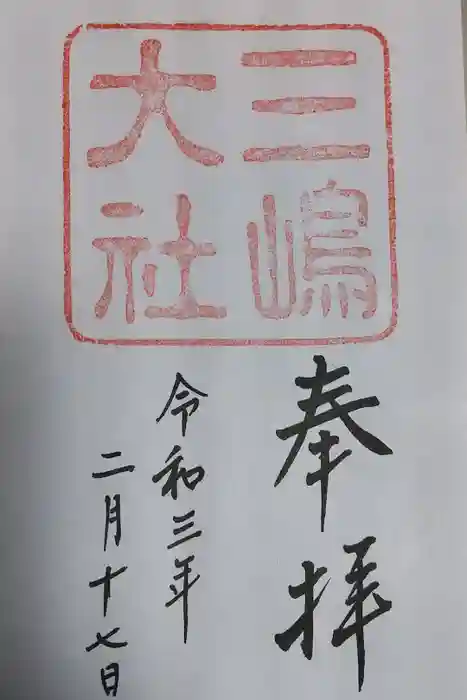 三嶋
大社
奉拝
令和三年
二月十七日